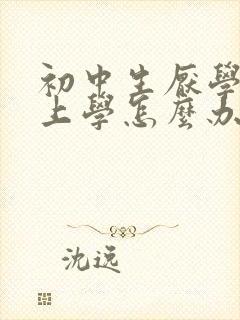 初中生厭學
上學怎麼办
沈远